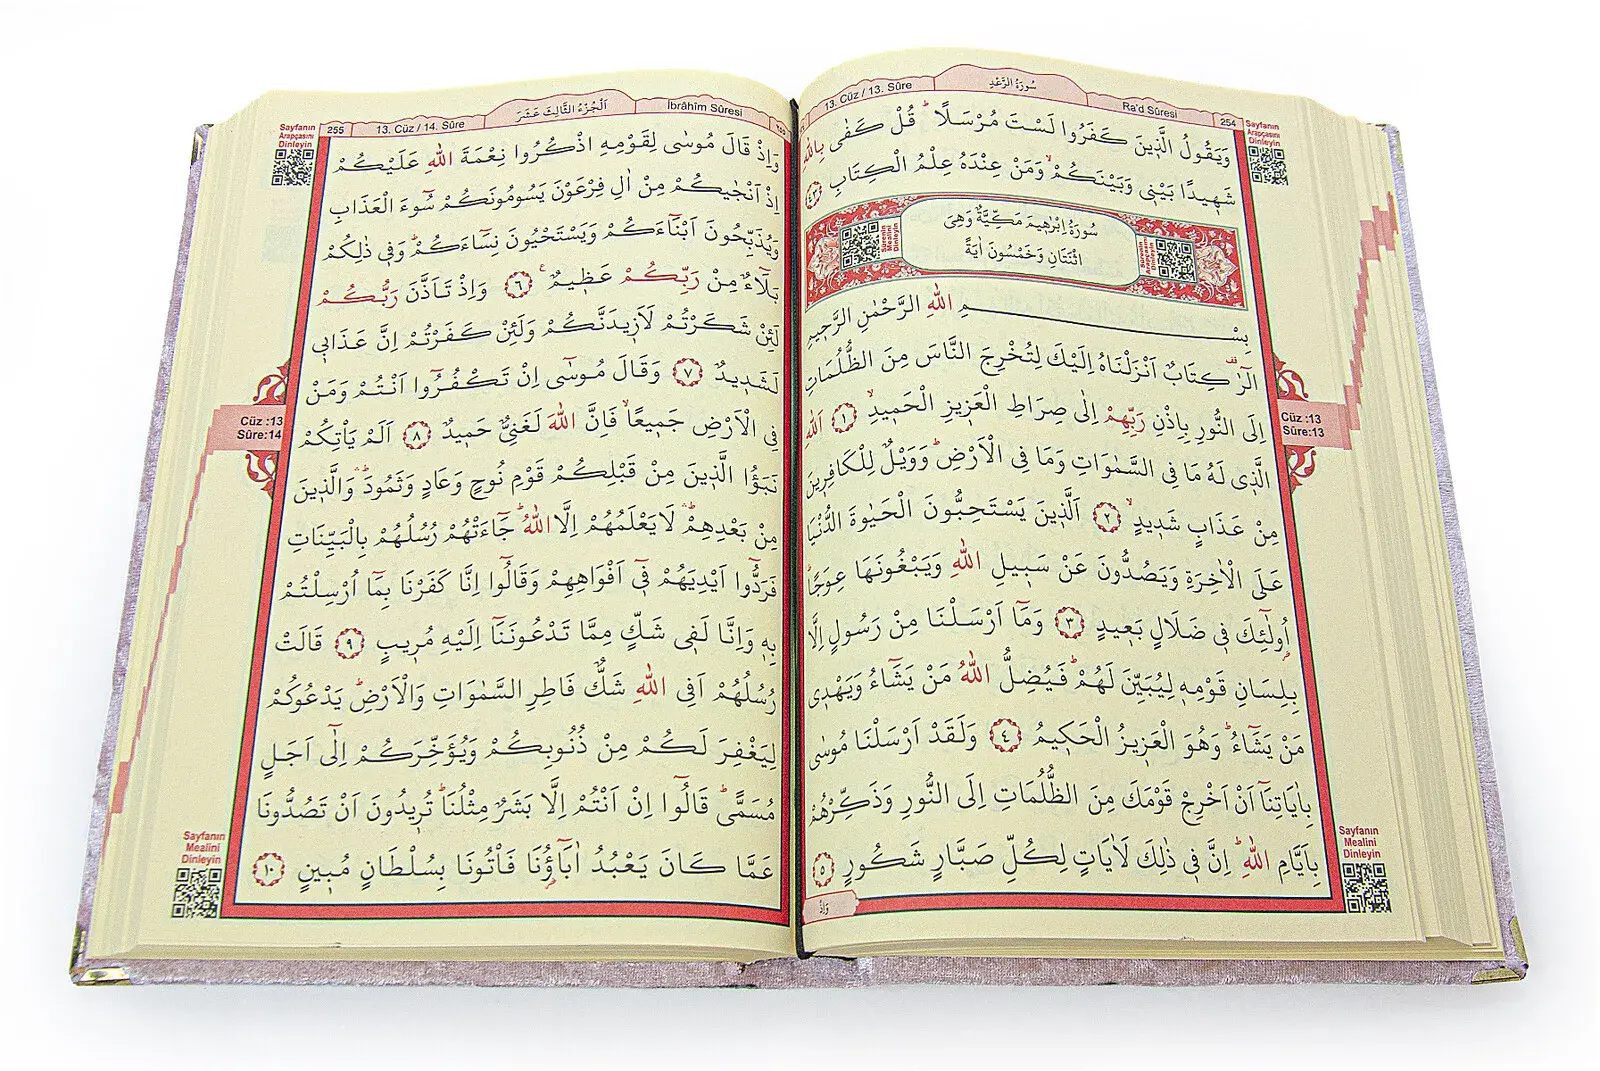 13. Cüz / 13. Sûre
سُورَةُ الرَّعْدِ
Ra'd Sûresi
254
Sayfanın
Arapçasını
Dinleyin
وَيَقُولُ الَّذ۪ينَ كَفَرُوا لَسْتَ مُرْسَلًاۜ قُلْ كَفٰى بِاللّٰهِ
شَه۪يدًا بَيْن۪ي وَبَيْنَكُمْۙ وَمَنْ عِنْدَهُ عِلْمُ الْكِتَابِ ﴿٤٣﴾
سُورَةُ اِبْرٰه۪يمَ مَكِّيَّةٌ وَهِيَ
اثْنَتَانِ وَخَمْسُونَ اٰيَةً
Sûrenin
Mealini
Dinleyin
بِسْمِ اللّٰهِ الرَّحْمٰنِ الرَّح۪يمِ
الٓرٰ۠ كِتَابٌ اَنْزَلْنَاهُ اِلَيْكَ لِتُخْرِجَ النَّاسَ مِنَ الظُّلُمَاتِ
اِلَى النُّورِ بِاِذْنِ رَبِّهِمْ اِلٰى صِرَاطِ الْعَز۪يزِ الْحَم۪يدِۙ ﴿١﴾ اَللّٰهِ
الَّذ۪ي لَهُ مَا فِي السَّمٰوَاتِ وَمَا فِي الْاَرْضِۜ وَوَيْلٌ لِلْكَافِر۪ينَ
مِنْ عَذَابٍ شَد۪يدٍۙ ﴿٢﴾ اَلَّذ۪ينَ يَسْتَحِبُّونَ الْحَيٰوةَ الدُّنْيَا
عَلَى الْاٰخِرَةِ وَيَصُدُّونَ عَنْ سَب۪يلِ اللّٰهِ وَيَبْغُونَهَا عِوَجًاۜ
اُو۬لٰٓئِكَ ف۪ي ضَلَالٍ بَع۪يدٍ ﴿٣﴾ وَمَٓا اَرْسَلْنَا مِنْ رَسُولٍ اِلَّا
بِلِسَانِ قَوْمِه۪ لِيُبَيِّنَ لَهُمْۜ فَيُضِلُّ اللّٰهُ مَنْ يَشَٓاءُ وَيَهْد۪ي
مَنْ يَشَٓاءُۜ وَهُوَ الْعَز۪يزُ الْحَك۪يمُ ﴿٤﴾ وَلَقَدْ اَرْسَلْنَا مُوسٰى
بِاٰيَاتِنَٓا اَنْ اَخْرِجْ قَوْمَكَ مِنَ الظُّلُمَاتِ اِلَى النُّورِ وَذَكِّرْهُمْ
بِاَيَّامِ اللّٰهِۜ اِنَّ ف۪ي ذٰلِكَ لَاٰيَاتٍ لِكُلِّ صَبَّارٍ شَكُورٍ ﴿٥﴾
وَاِذْ
Cüz :13
Sûre:13
Sayfanın
Mealini
Dinleyin
255
13. Cüz / 14. Sûre
اَلْجُزْءُ الثَّالِثَ عَشَرَ
İbrâhîm Sûresi
Sayfanın
Arapçasını
Dinleyin
وَاِذْ قَالَ مُوسٰى لِقَوْمِهِ اذْكُرُوا نِعْمَةَ اللّٰهِ عَلَيْكُمْ
اِذْ اَنْجٰيكُمْ مِنْ اٰلِ فِرْعَوْنَ يَسُومُونَكُمْ سُٓوءَ الْعَذَابِ
وَيُذَبِّحُونَ اَبْنَٓاءَكُمْ وَيَسْتَحْيُونَ نِسَٓاءَكُمْۜ وَف۪ي ذٰلِكُمْ
بَلَٓاءٌ مِنْ رَبِّكُمْ عَظ۪يمٌ۟ ﴿٦﴾ وَاِذْ تَاَذَّنَ رَبُّكُمْ
لَئِنْ شَكَرْتُمْ لَاَز۪يدَنَّكُمْ وَلَئِنْ كَفَرْتُمْ اِنَّ عَذَاب۪ي
لَشَد۪يدٌ ﴿٧﴾ وَقَالَ مُوسٰٓى اِنْ تَكْفُرُٓوا اَنْتُمْ وَمَنْ
فِي الْاَرْضِ جَم۪يعًاۙ فَاِنَّ اللّٰهَ لَغَنِيٌّ حَم۪يدٌ ﴿٨﴾ اَلَمْ يَأْتِكُمْ
نَبَؤُا الَّذ۪ينَ مِنْ قَبْلِكُمْ قَوْمِ نُوحٍ وَعَادٍ وَثَمُودَۜۛ وَالَّذ۪ينَ
مِنْ بَعْدِهِمْۜۛ لَا يَعْلَمُهُمْ اِلَّا اللّٰهُۜ جَٓاءَتْهُمْ رُسُلُهُمْ بِالْبَيِّنَاتِ
فَرَدُّٓوا اَيْدِيَهُمْ ف۪ٓي اَفْوَاهِهِمْ وَقَالُٓوا اِنَّا كَفَرْنَا بِمَٓا اُرْسِلْتُمْ
بِه۪ وَاِنَّا لَف۪ي شَكٍّ مِمَّا تَدْعُونَنَٓا اِلَيْهِ مُر۪يبٍ ﴿٩﴾ قَالَتْ
رُسُلُهُمْ اَفِي اللّٰهِ شَكٌّ فَاطِرِ السَّمٰوَاتِ وَالْاَرْضِۜ يَدْعُوكُمْ
لِيَغْفِرَ لَكُمْ مِنْ ذُنُوبِكُمْ وَيُؤَخِّرَكُمْ اِلٰٓى اَجَلٍ
مُسَمًّىۜ قَالُٓوا اِنْ اَنْتُمْ اِلَّا بَشَرٌ مِثْلُنَاۜ تُر۪يدُونَ اَنْ تَصُدُّونَا
عَمَّا كَانَ يَعْبُدُ اٰبَٓاؤُ۬نَا فَأْتُونَا بِسُلْطَانٍ مُب۪ينٍ ﴿١٠﴾
Cüz :13
Sûre:14
Sayfanın
Mealini
Dinleyin